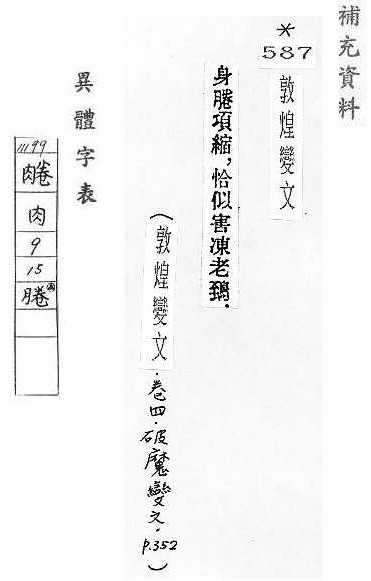 補充資料
*
587
敦煌變文
身腃項縮，恰似害凍老鵄．
（敦煌變文．卷四．破魔變文．P.352）
異體字表
肉
9
15
腃